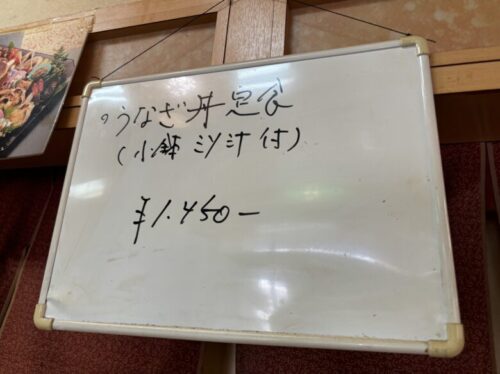 。うなぎ丼定食
(小鉢 ミソ汁 付)
¥1.450-